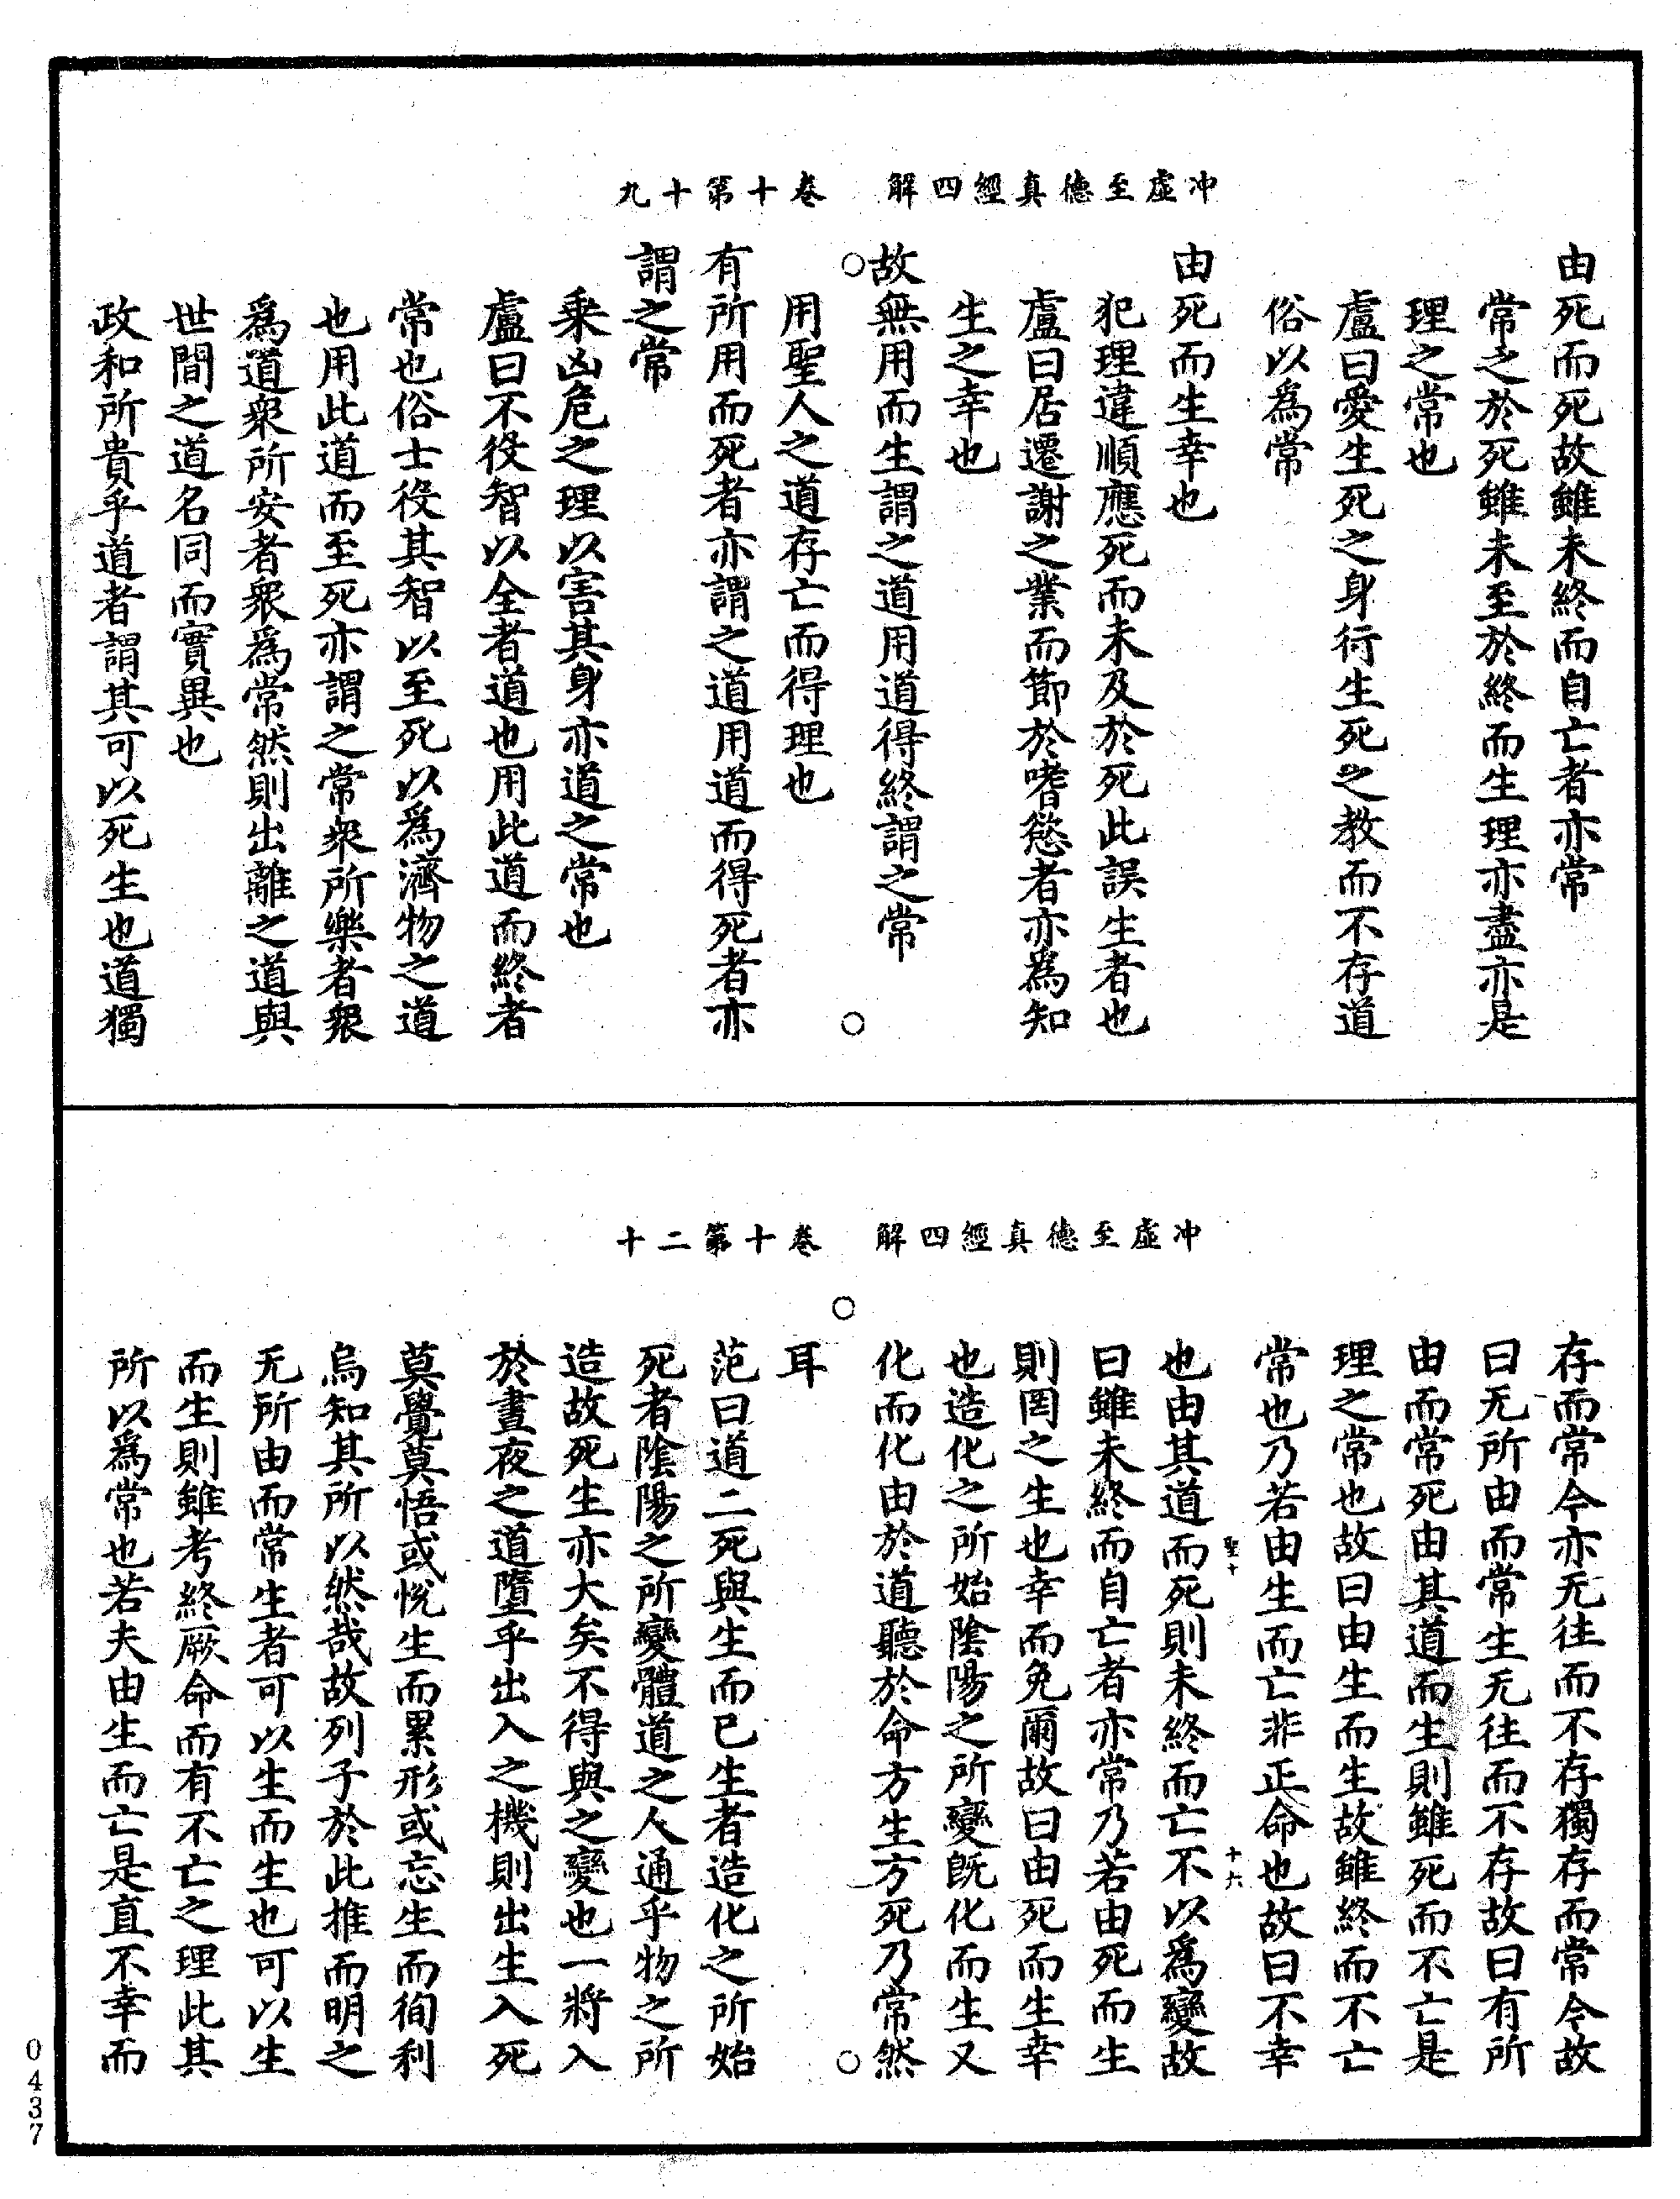 冲虛至德真經四解　卷十第十九
由死而死故雖未終而自亡者亦常
常之於死雖未至於終而生理亦盡亦是
理之常也
盧曰愛生死之身行生死之教而不存道
俗以為常
由死而生幸也
犯理違順應死而未及於死此誤生者也
盧曰居遷謝之業而節於嗜慾者亦為知
生之幸也
○故無用而生謂之道用道得終謂之常○
用聖人之道存亡而得理也
有所用而死者亦謂之道用道而得死者亦
謂之常
乘凶危之理以害其身亦道之常也
盧曰不役智以全者道也用此道而終者
常也俗士役其智以至死以為濟物之道
也用此道而至死亦謂之常眾所樂者眾
為道眾所安者眾為常然則出離之道與
世間之道名同而實異也
政和所貴乎道者謂其可以死生也道獨
冲虛至德真經四解　卷十第二十
存而常今亦无往而不存獨存而常今故
曰无所由而常生无往而不存故曰有所
由而常死由其道而生則雖死而不亡是
理之常也故曰由生而生故雖終而不亡
常也乃若由生而亡非正命也故曰不幸
聖十　十六
也由其道而死則未終而亡不以為變故
曰雖未終而自亡者亦常乃若由死而生
則罔之生也幸而免爾故曰由死而生幸
也造化之所始陰陽之所變旣化而生又
化而化由於道聽於命方生方死乃常然
○○
耳
范曰道二死與生而已生者造化之所始
死者陰陽之所變體道之人通乎物之所
造故死生亦大矣不得與之變也一將入
於晝夜之道墮乎出入之機則出生入死
莫覺莫悟或悅生而累形或忘生而徇利
烏知其所以然哉故列子於此推而明之
无所由而常生者可以生而生也可以生
而生則雖考終厥命而有不亡之理此其
所以為常也若夫由生而亡是直不幸而
0437